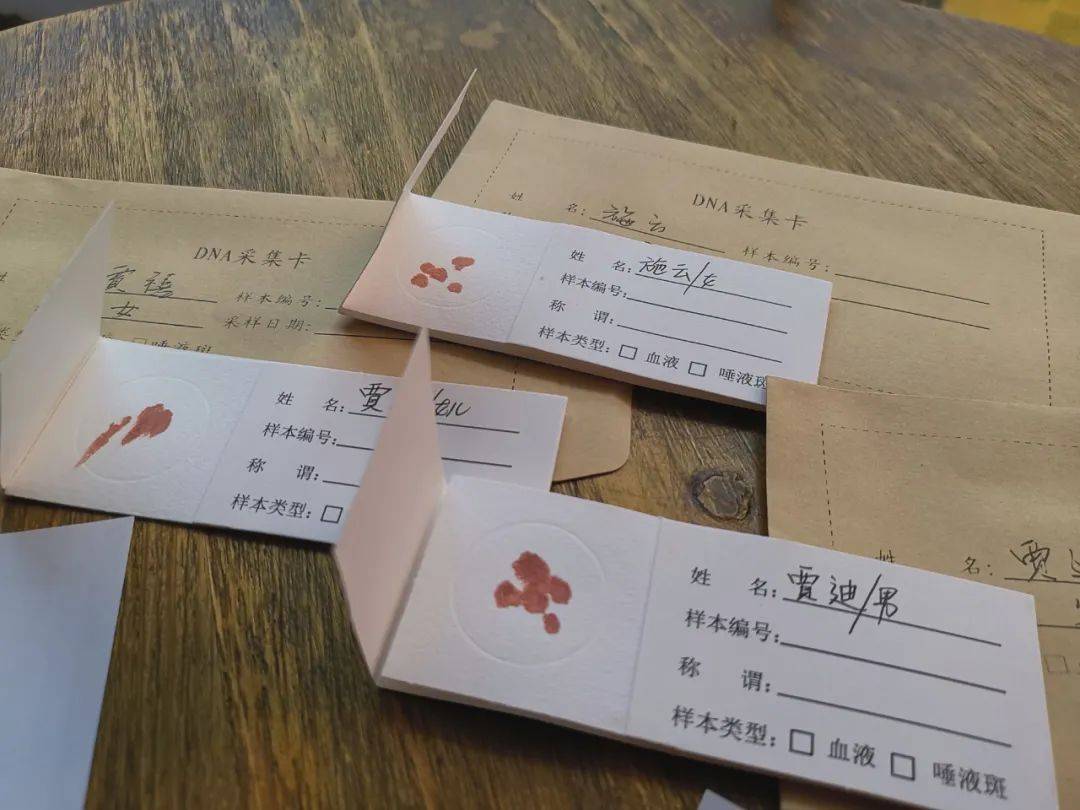 DNA采集卡
姓 名: 施云
样本编号:
姓 名: 施云/女
样本编号:
称 谓:
样本类型: □ 血液 □ 唾液斑
DNA采集卡
賈禧 样本编号:
女 采样日期:
□ 唾液斑
姓 名: 賈
样本编号:
称 谓:
样本类型: □
姓 名: 賈
姓 名: 賈迪/男
样本编号:
称 谓:
样本类型: □ 血液 □ 唾液斑